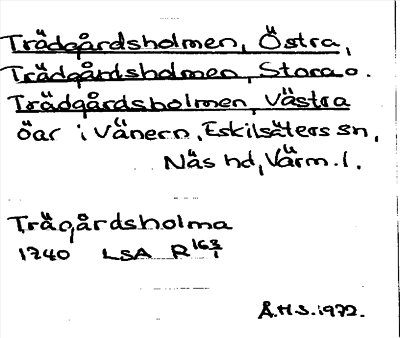 Trädgårdsholmen, Östra,
Trädgårdsholmen, Stora o.
Trädgårdsholmen, Västra
öar i Vänern, Eskilsäters sn,
Näs hd, Värm. l.
Trägårdsholma
1740 LSA R 163/1
Å.H.S. 1972.